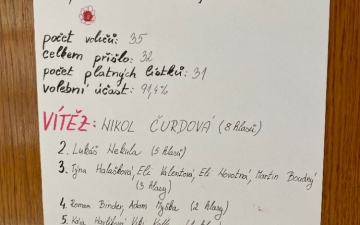 počet voličů: 35
celkem přišlo: 32
počet platných lístků: 31
volební účast: 91,4%
VÍTĚZ: NIKOL ČURDOVÁ (8 hlasů)
2. Lukáš Nekula (5 hlasů)
3. Týna Halašková, Eli Valentová, Eli Novotná, Martin Boudný
(3 hlasy)
4. Roman Binder, Adam Myška (2 hlasy)
5. Kája